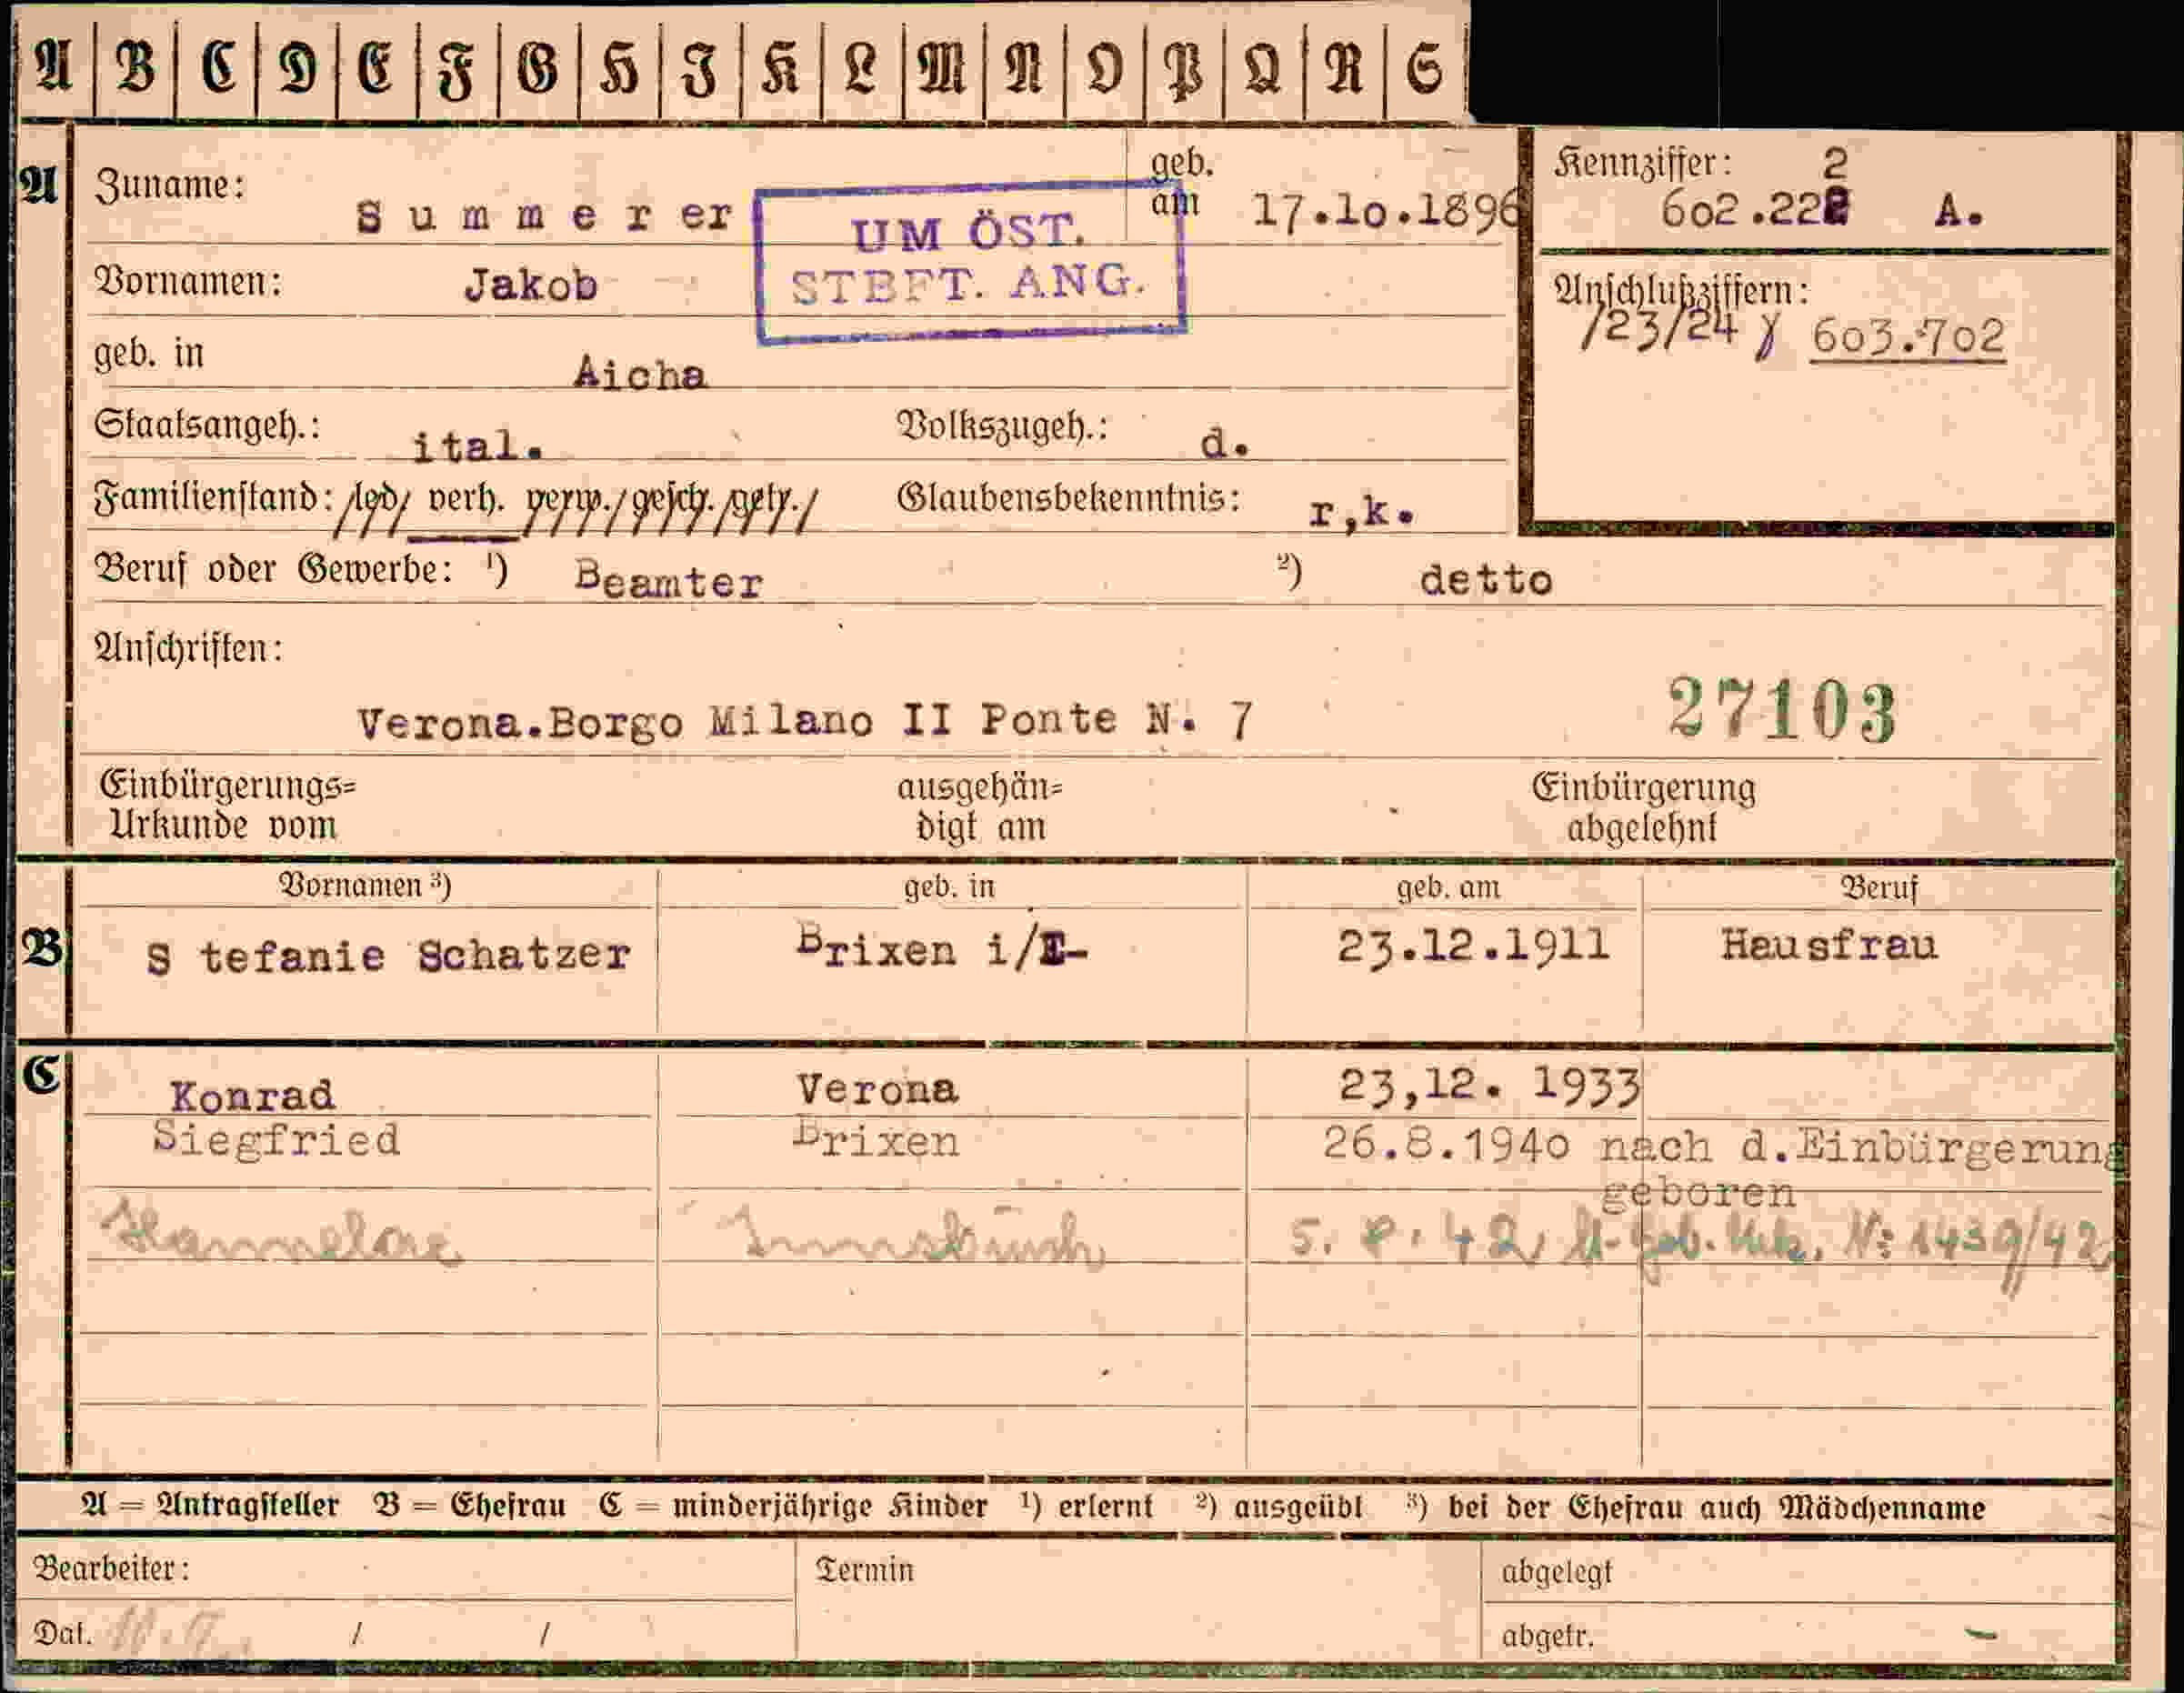 A B C D E F G H I K L M N O P Q R S
A Zuname: Summerer geb. am 17.10.1896
UM ÖST. STBFT. ANG.
Kennziffer: 2
602.222 A.
Vornamen: Jakob
Anschlußziffern:
/23/24 603.702
geb. in Aicha
Staatsangeh.: ital. Volkszugeh.: d.
Familienstand: /led/ verh. verw./gesch./getr./ Glaubensbekenntnis: r,k.
Beruf oder Gewerbe: ¹) Beamter ²) detto
Anschriften:
Verona.Borgo Milano II Ponte N. 7 27103
Einbürgerungs= ausgehän= Einbürgerung
Urkunde vom digt am abgelehnt
Vornamen ³) geb. in geb. am Beruf
B S tefanie Schatzer Brixen i/E- 23.12.1911 Hausfrau
C Konrad Verona 23,12. 1933
Siegfried Brixen 26.8.1940 nach d.Einbürgerung
geboren
Hannelore Innsbruck 5. 8. 42, Nº 1439/42
A = Antragsteller B = Ehefrau C = minderjährige Kinder ¹) erlernt ²) ausgeübt ³) bei der Ehefrau auch Mädchenname
Bearbeiter: Termin abgelegt
Dat. / / abgetr.